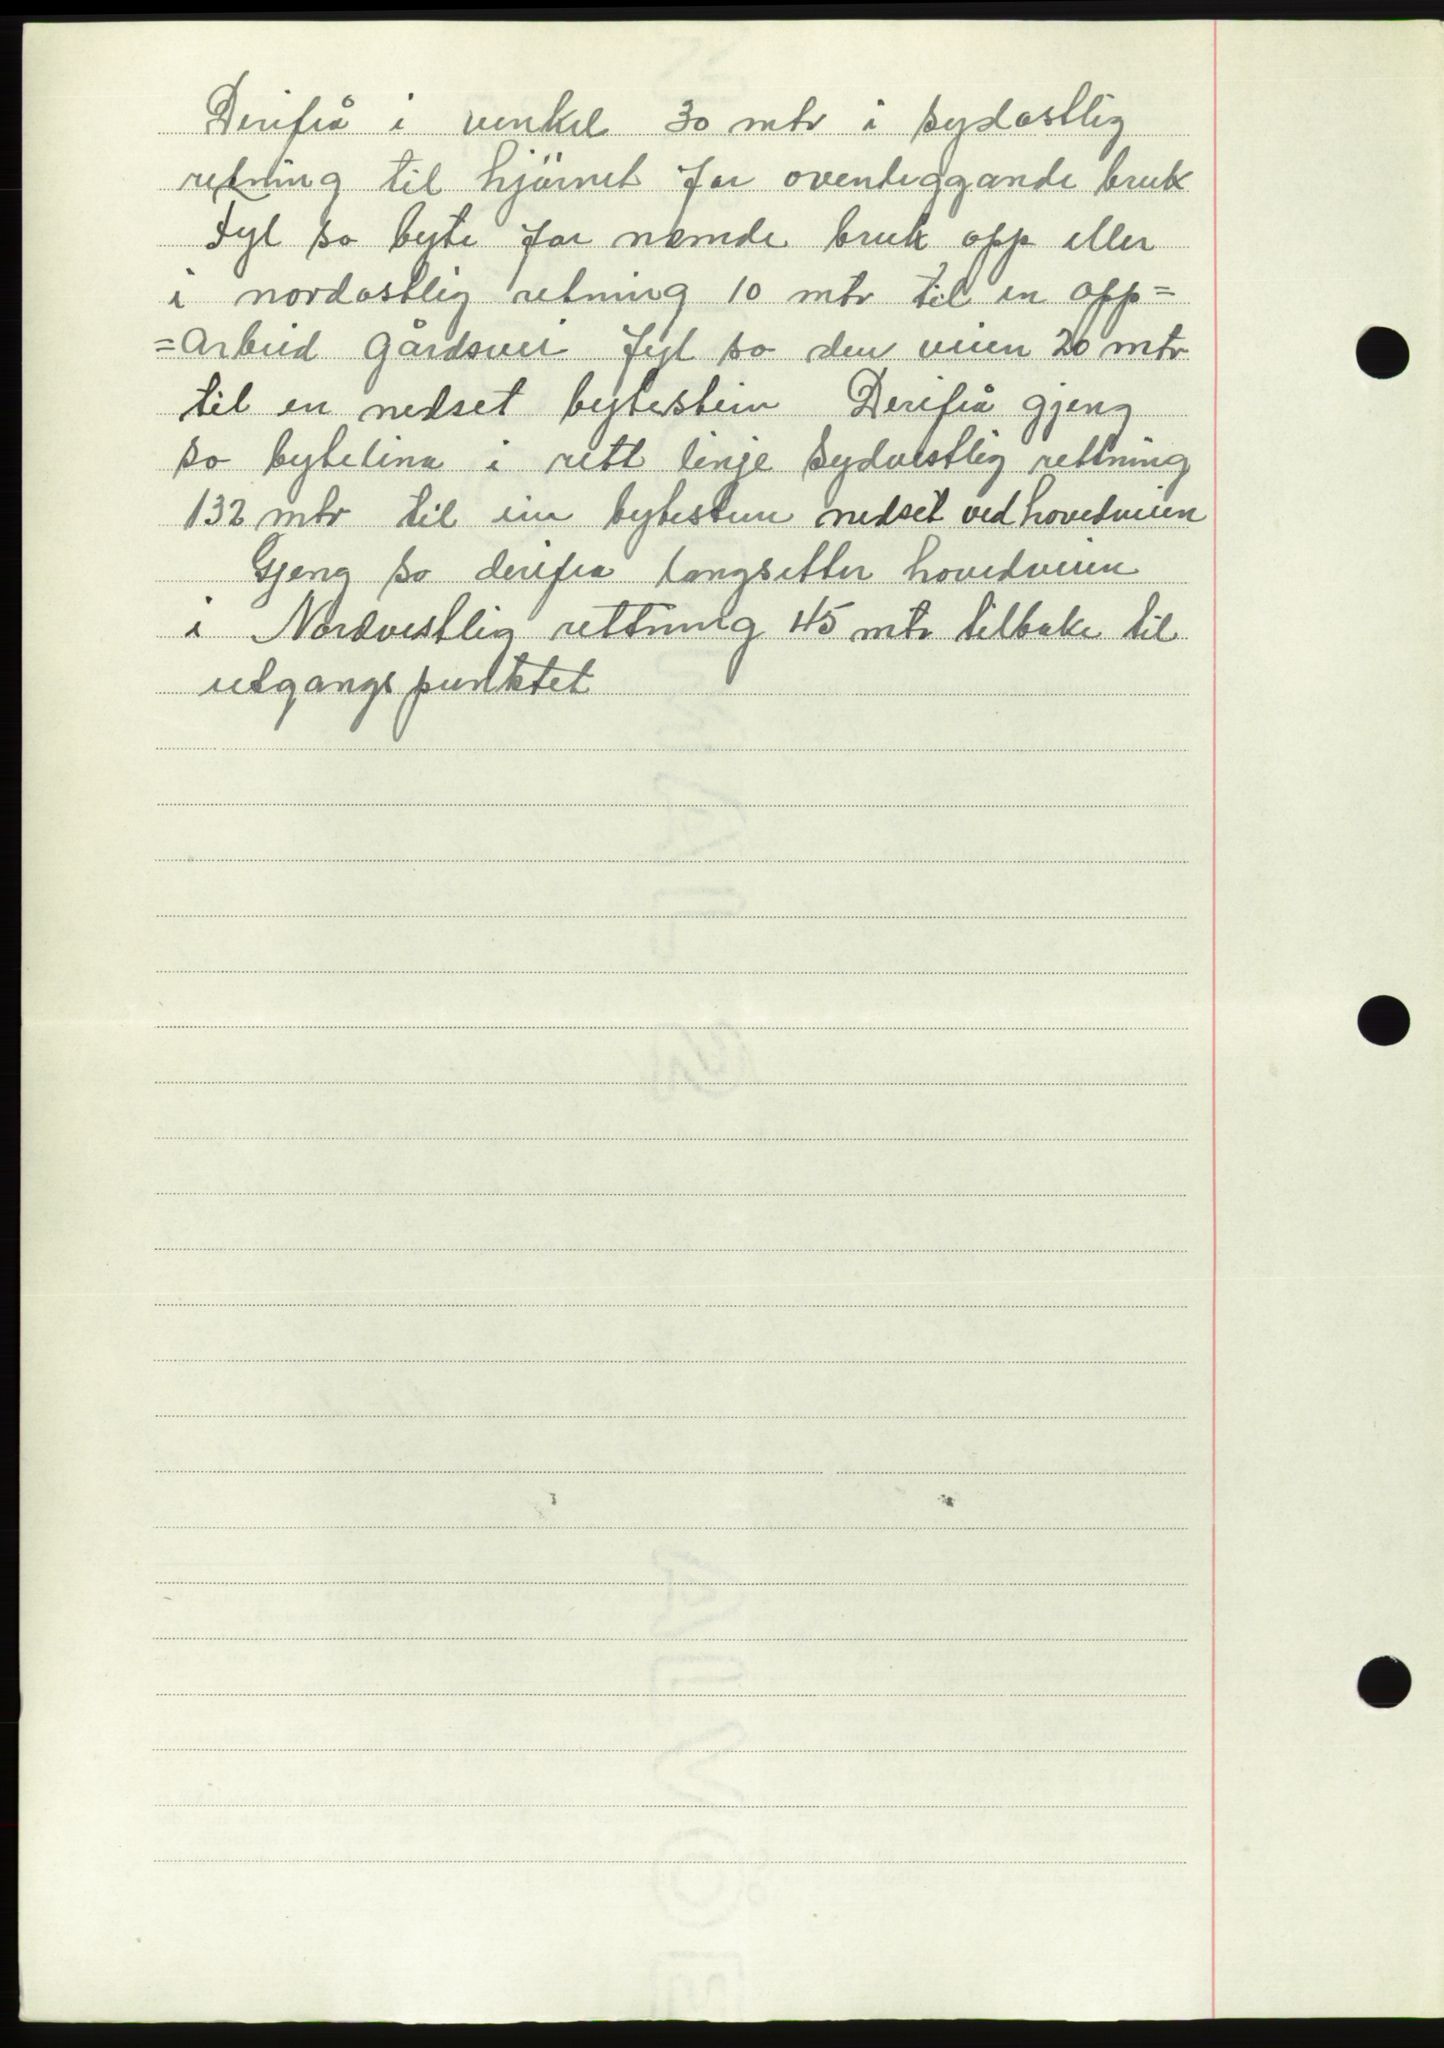 Derifrå i venkel 30 mtr i sydostlig
retning til hjörnet for ovenliggande bruk
Fyl so byte for nemde bruk opp eller
i nordostlig retning 10 mtr til en opp=
=arbeid gårdsvei Fyl so den veien 20 mtr
til en nedset bytestein Derifrå gjeng
so bytelina i rett linje sydvestlig rettning
132 mtr til ein bytestein nedset ved hovedveien
Gjeng so derifra langsetter hovedveien
i Nordvestlig rettning 45 mtr tilbake til
utgangspunktet